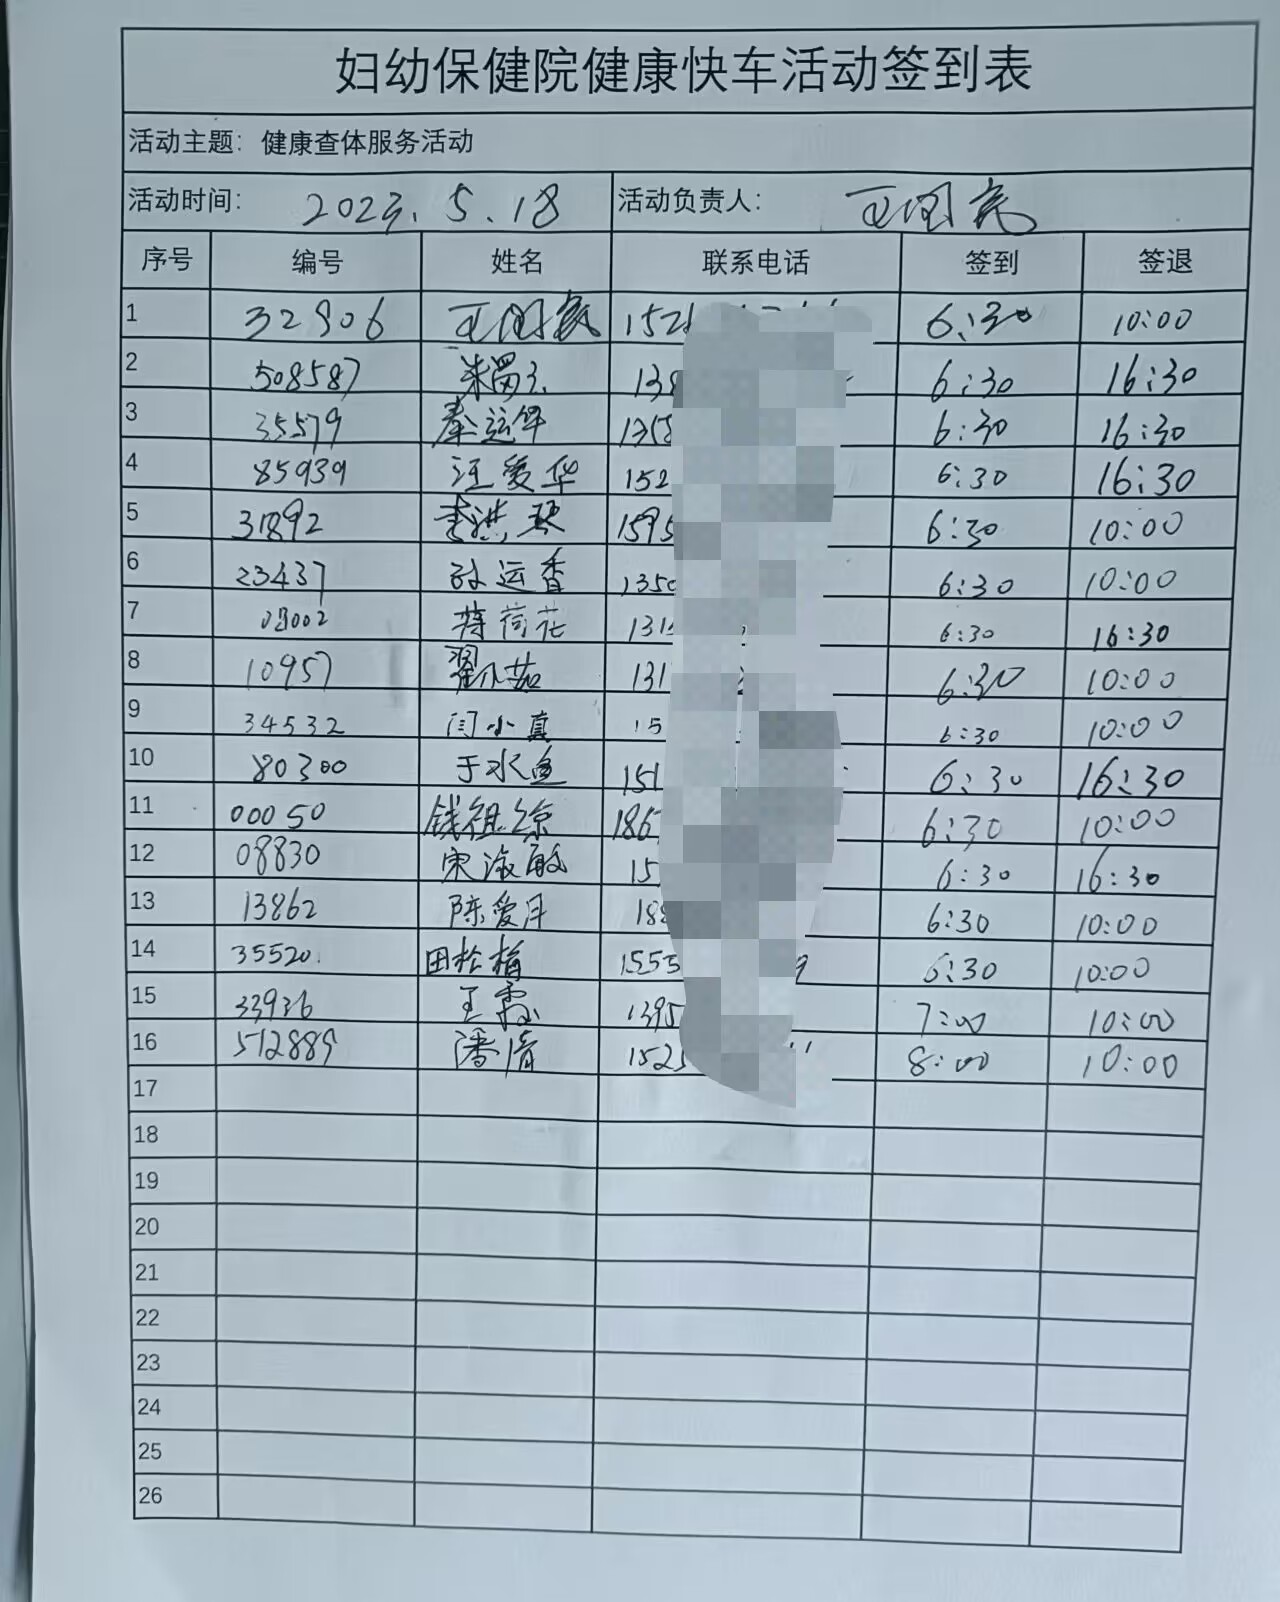 妇幼保健院健康快车活动签到表
活动主题：健康查体服务活动
活动时间：2023.5.18 活动负责人：
序号 编号 姓名 联系电话 签到 签退
1 32906 1521 6:30 10:00
2 508587 138 6:30 16:30
3 35579 秦运华 1358 6:30 16:30
4 85939 汪爱华 152 6:30 16:30
5 31892 李洪琴 1595 6:30 10:00
6 23437 孙运香 1350 6:30 10:00
7 蒋荷花 131 6:30 16:30
8 10957 翟小茹 131 6:30 10:00
9 34532 闫小真 15 6:30 10:00
10 80300 于水鱼 151 6:30 16:30
11 00050 钱祖综 186 6:30 10:00
12 08830 宋淑敏 15 6:30 16:30
13 13862 陈爱月 188 6:30 10:00
14 35520 田桂梅 1555 9 6:30 10:00
15 33936 王霞 1395 7:00 10:00
16 512889 潘倩 1525 8:00 10:00
17
18
19
20
21
22
23
24
25
26